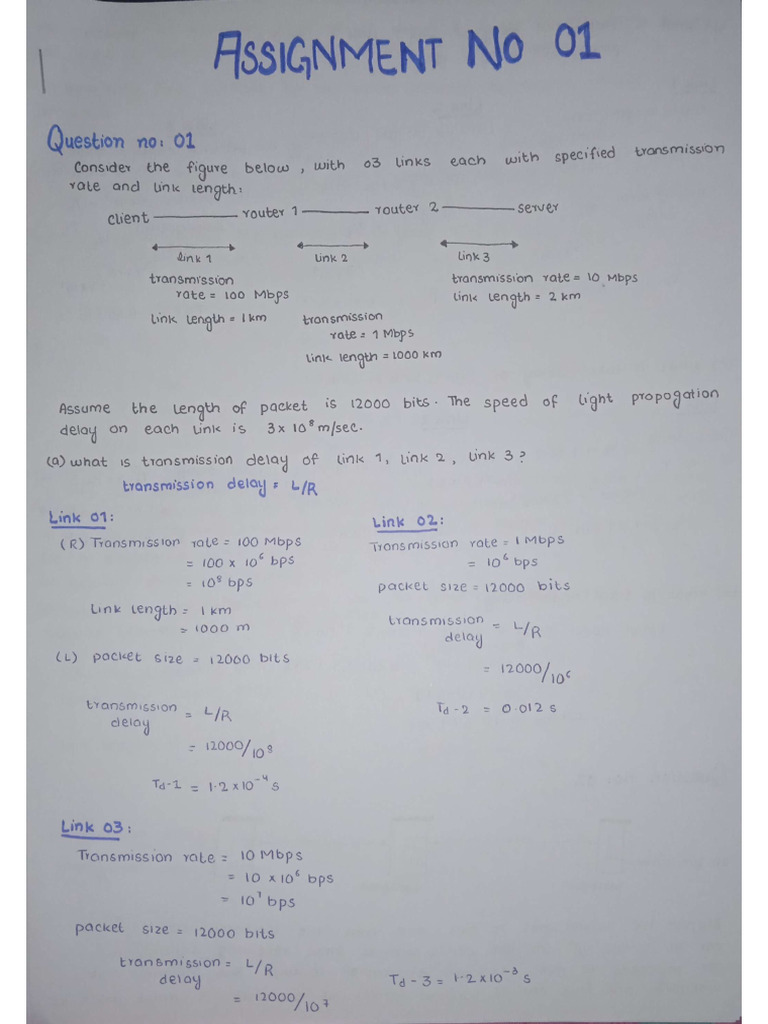 ASSIGNMENT NO 01
Question no: 01
Consider the figure below, with 03 links each with specified transmission
rate and link length:
client router 1 router 2 server
link 1 link 2 link 3
transmission
rate = 100 Mbps
link length = 1km
transmission
rate = 1 Mbps
link length = 1000 km
transmission rate = 10 Mbps
link length = 2 km
Assume the length of packet is 12000 bits. The speed of light propogation
delay on each link is 3 x 10⁸ m/sec.
(a) what is transmission delay of link 1, link 2, link 3?
transmission delay = L/R
Link 01:
(R) Transmission rate = 100 Mbps
= 100 x 10⁶ bps
= 10⁸ bps
Link length = 1 km
= 1000 m
(L) packet size = 12000 bits
transmission delay = L/R
= 12000/10⁸
Td-1 = 1.2 x 10⁻⁴ s
Link 02:
Transmission rate = 1 Mbps
= 10⁶ bps
packet size = 12000 bits
transmission delay = L/R
= 12000/10⁶
Td-2 = 0.012 s
Link 03:
Transmission rate = 10 Mbps
= 10 x 10⁶ bps
= 10⁷ bps
packet size = 12000 bits
transmission delay = L/R
= 12000/10⁷
Td-3 = 1.2 x 10⁻³ s